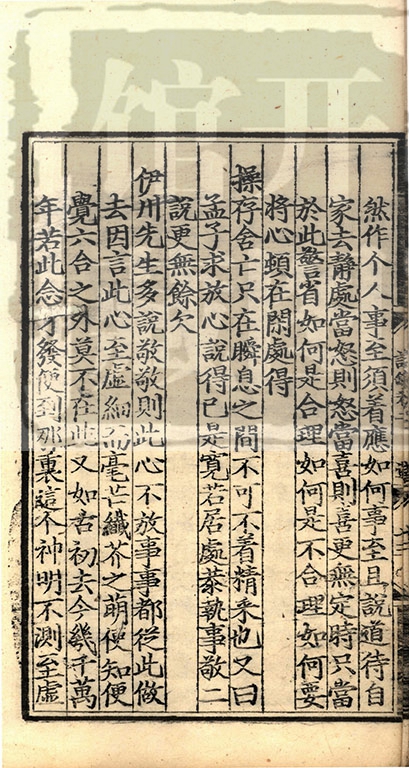 然作个人事至須着應如何事至且說道待自
家去静處當怒則怒當喜則喜更無定時只當
於此警省如何是合理如何是不合理如何要
將心頓在閑處得
操存舍亡只在瞬息之間不可不着精采也又曰
孟子求放心說得已是寬若居處恭執事敬二
說更無餘欠
伊川先生多說敬敬則此心不放事事都從此做
去因言此心至虚細而毫芒纖芥之萌便知便
覺六合之外莫不在此又如古初去今幾千萬
年若此念才發便到那裏這个神明不測至虚